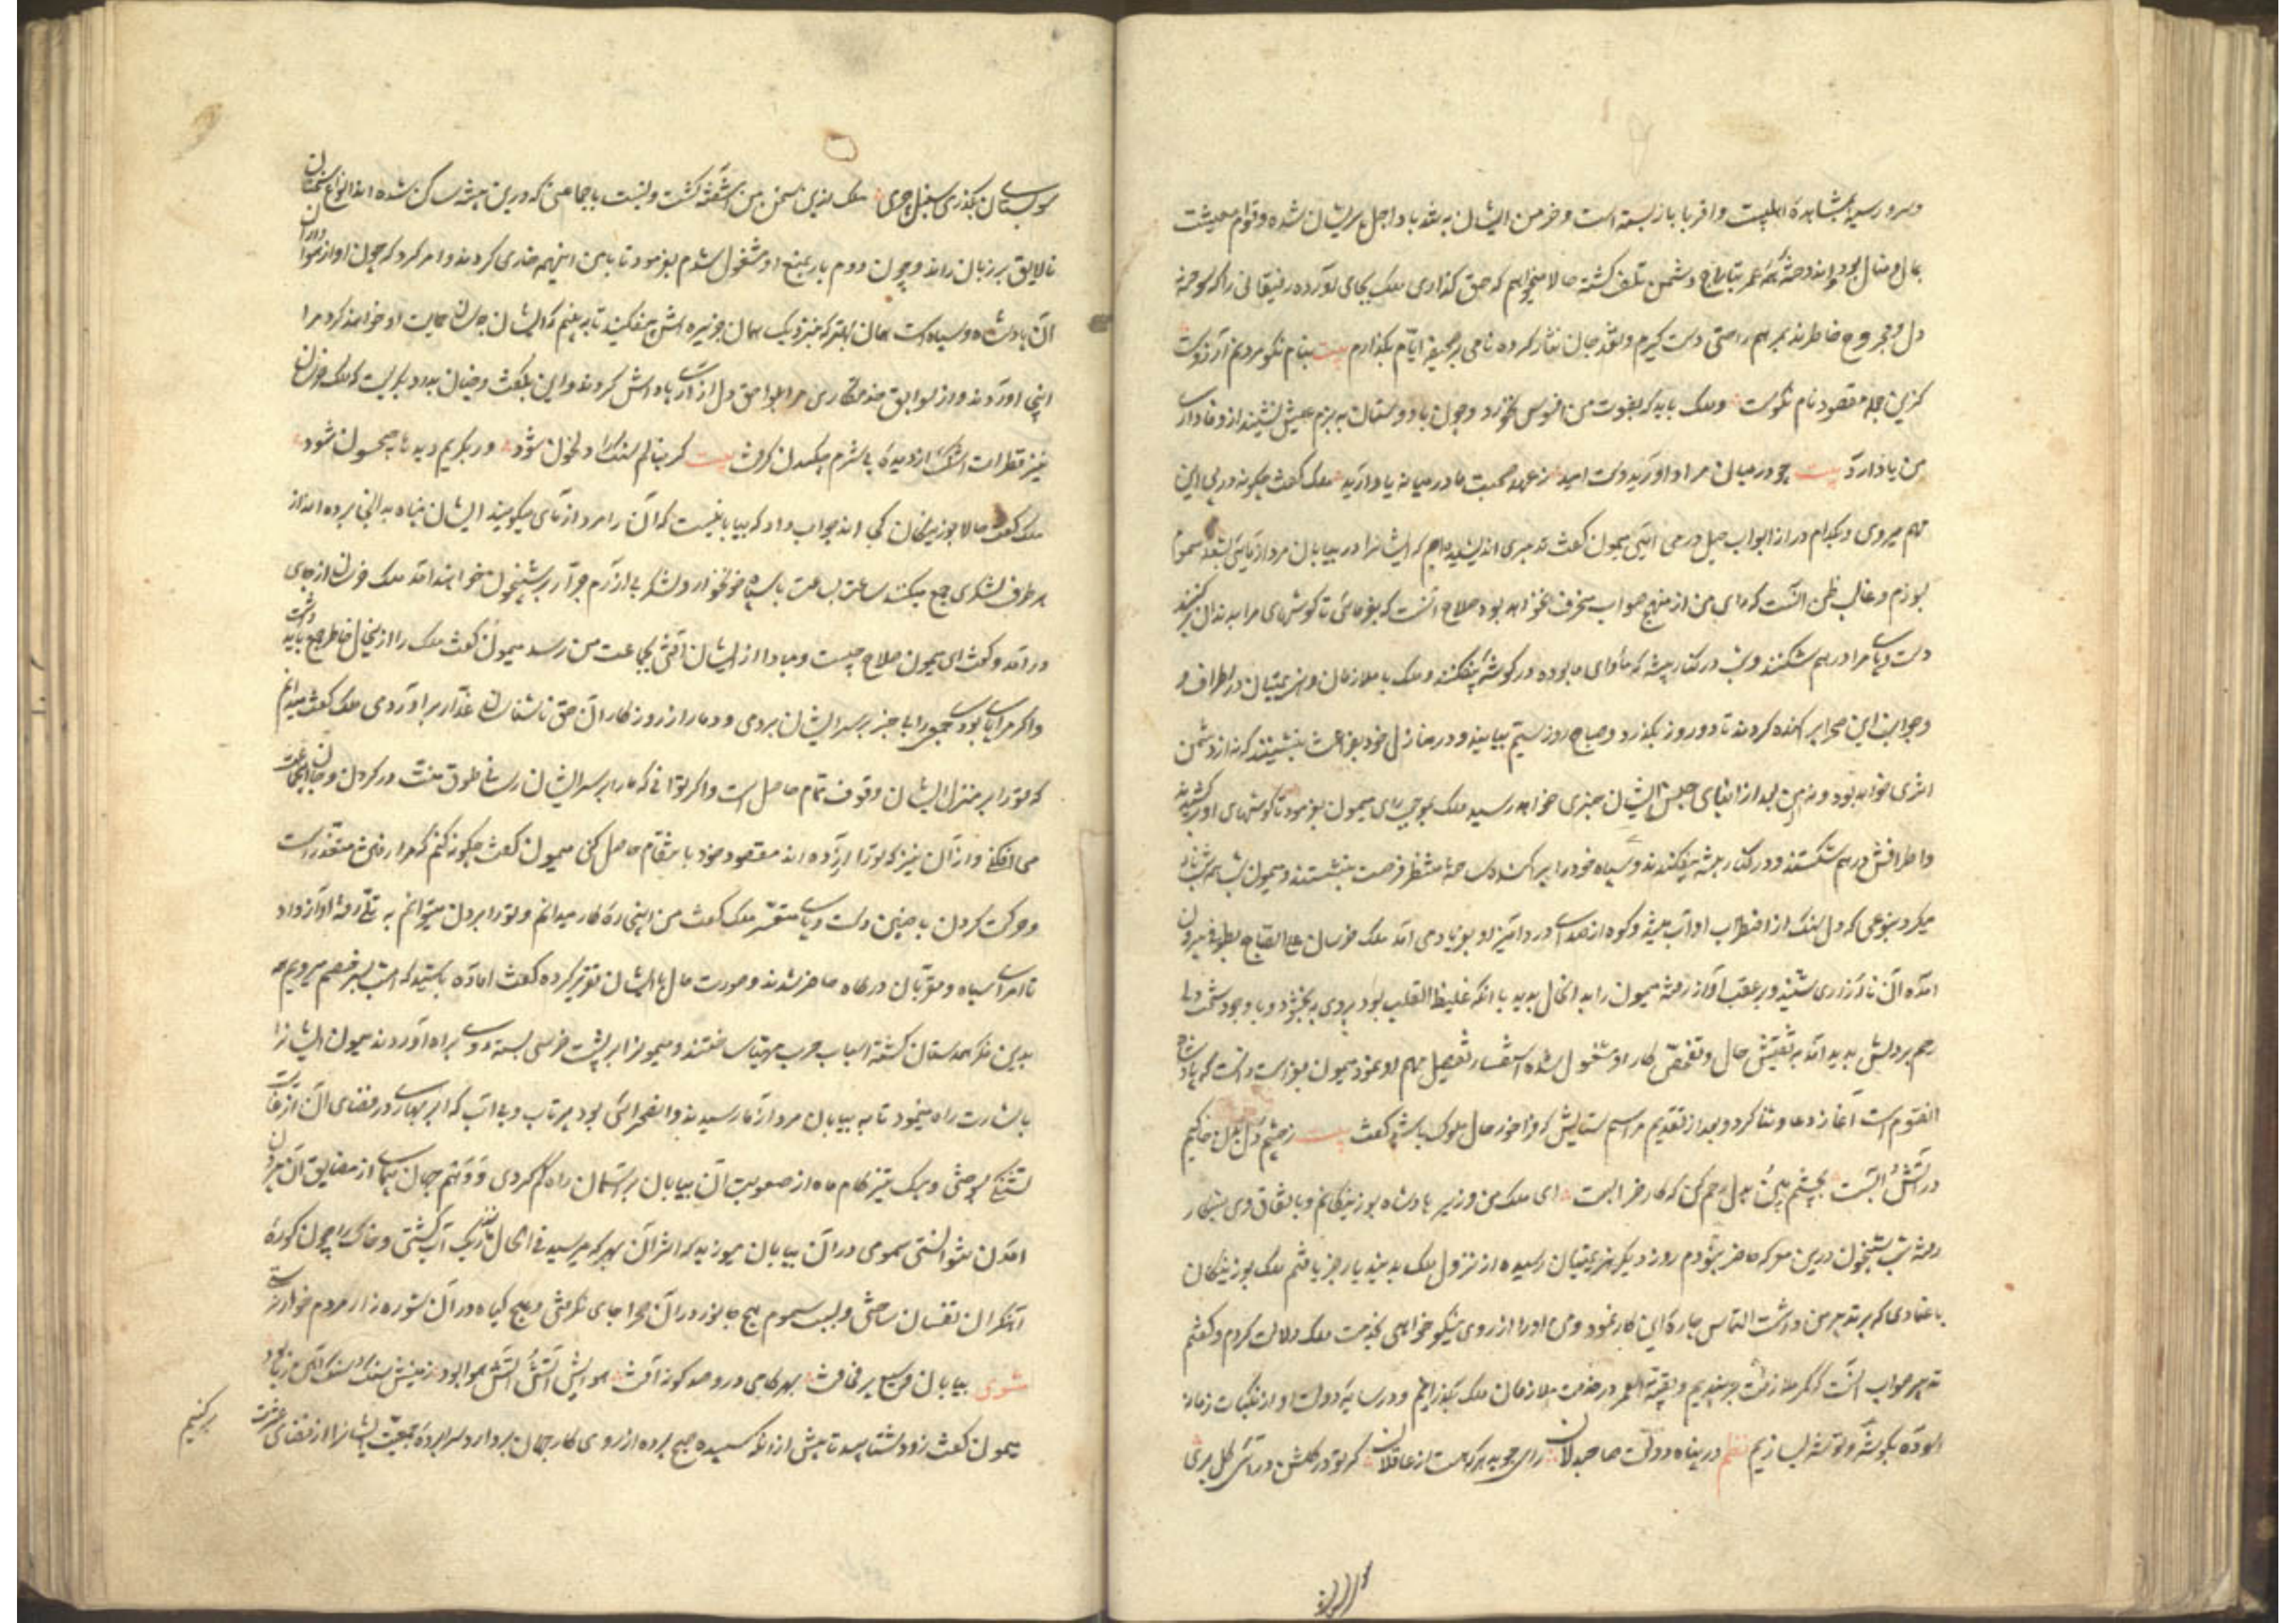 و سرور سینه بمشاهدهٔ اهلبیت و اقربا باز بسته است و خرمن ایشان به تند باد اجل پریشان شده و قوام معیشت
بمال و منال بود و اندوختهٔ همه عمر بتاراج دشمن تلف گشته حالا میخواهم که حق گذاری ملک بجای آورده رفیقانی را که سوخته
دل و مجروح خاطرند بمرهم راحتی دست گیرم و نقد جان نثار کرده نامی بر صحیفهٔ ایام بگذارم بیت بنام نکو مردنم آرزوست
کزین جمله مقصود نام نکوست و ملک باید که بفوت من افسوس نخورد و چون با دوستان به بزم عیش نشیند از وفاداری
من یاد آرد بیت چو در میان مراد آورید دست امید ز عهد صحبت ما در میانه یاد آرید ملک گفت چگونه در پی این
مهم میروی و بکدام در از ابواب حیل در می آئی میمون گفت تدبیری اندیشیده ام که ایشانرا در بیابان مردآزمای بتف سموم
بسوزم و غالب ظن آنست که رای من از منهج صواب منحرف نخواهد بود صلاح آنست که بفرمائی تا گوشهای مرا بدندان برکنند
دست و پای مرا درهم شکنند و شب در کنار بیشه که ماوای ما بوده در گوشهٔ بیفکنند و ملک با ملازمان و هزیمتیان در اطراف
و جوانب این صحرا پراکنده گردند تا دو روز بگذرد و صباح روز سیم بیایند و در منازل خود بفراغت بنشینند که نه از دشمن
اثری خواهد بود و نه من بعد از ابنای جنس ایشان خبری خواهد رسید ملک بموجب رای میمون بفرمود تا گوشهای او برکشیدند
و اطرافش درهم شکستند و در کنار بیشه بیفکندند و سپاه خود را پراکنده ساخته منتظر فرصت بنشستند و میمون همه شب ناله
میکرد بنوعی که دل سنگ از اضطراب او آب میشد و کوه از صدای درد آمیز او بفریاد می آمد ملک خرسان علی الصباح بطوف بیرون
آمده آن نالهٔ زاری شنید و بر عقب آواز رفته میمون را بدان حال بدید با آنکه غلیظ القلب بود بر وی ببخشود و با وجود سخت دلی
رحم بر دلش پدید آمد به تفتیش حال و تفحص کار او مشغول شده استفسار تفصیل مهم او نمود میمون بفراست دانست که پادشاه
آنقوم است آغاز دعا و ثنا کرد و بعد از تقدیم مراسم ستایش که فراخور حال ملوک باشد گفت بیت ز چشم و دل بدن خاکیم
در آتش و آبست بچشم ببین و بدل رحم کن که کار خرابست ای ملک من وزیر پادشاه بوزینگانم و باتفاق وی بشکار
رفته شب شبیخون درین معرکه حاضر نبودم روز دیگر هزیمتیان رسیده از نزول ملک بدینجا خبر یافتم ملک بوزینگان
باعتمادی که بر تدبیر من داشت التماس چارهٔ این کار نمود و من او را از روی نیکو خواهی بخدمت ملک دلالت کردم و گفتم
تدبیر صواب آنست که کمر ملازمت بربندیم و بقیة العمر در خدمت ملازمان ملک بگذرانیم و در سایهٔ دولت او از نکبات زمانه
آسوده بگوشهٔ و توشهٔ بسازیم نظم در پناه دولت صاحبدلان رای جوید هر که هست از عاقلان گر تو در گلشن درآئی گل بری
سوی بستان بگذری سنبل چری ملک ازین سخن من آشفته گشت و نسبت با جماعتی که درین بیشه ساکن شده اند انواع سخنان
نالایق بر زبان راند و چون دوم بار بمنع او مشغول شدم بفرمود تا با من اینهمه خواری کردند و امر کرد که چون او از هواداران
آن پادشاه و سپاه است همان بهتر که نزدیک همان جزیره اش بیفکنند تا ببینم که ایشان چه سان حمایت او خواهند کرد مرا
اینجا آوردند و از سوابق خدمتکاری مرا بلواحق دل آزاری پاداش کردند و این بگفت و چنان بدرد بگریست که ملک خرسان را
نیز قطرات اشک از دیدهٔ بی شرم چکیدن گرفت بیت گر بنالم سنگ را دل خون شود ور بگریم دیده ها جیحون شود
ملک گفت حالا بوزینگان کجا اند جواب داد که بیابانیست که آن را مردآزمای میگویند ایشان پناه بدانجا برده اند از
هر طرف لشکری جمع میکنند ساعت بساعت با سپاه خونخوار و لشکر بی آزرم جرار بر شبیخون خواهند آمد ملک خرسان از جای
در آمد و گفت ای میمون صلاح چیست و مبادا از ایشان آفتی بجماعت من رسد میمون گفت ملک را ازین حال خاطر جمع باید داشت
و اگر مرا پای بودی جمعی را بی خبر بر سر ایشان بردمی و دمار از روزگار آن حق ناشناسان غدار برآوردمی ملک گفت میدانم
که تو را بر منزل ایشان وقوف تمام حاصل است و اگر توانی که ما را بر سر ایشان رسانی طوق منت در گردن جان این جماعت
می افکنی و از آن نیز که ترا آزرده اند مقصود خود بانتقام حاصل کنی میمون گفت چگونه کنم که مرا رفتن متعذر است
و حرکت کردن با چنین دست و پای متعسر ملک گفت من اینرا چارهٔ کار میدانم و تو را بردن میتوانم پس آواز داد
تا امرای سپاه و مقربان درگاه حاضر شدند و صورت حال با ایشان تقریر کرده گفت آماده باشید که امشب بر سر خصم میرویم همه
بدین فکر همداستان گشته اسباب حرب مهیا ساختند و میمون را بر پشت خرسی بسته روی براه آوردند میمون ایشانرا
باشارت راه مینمود تا به بیابان مردآزمای رسیدند و آنصحرائی بود پر تاب و بی آب که ابر بهاری در فضای آن از غایت
تشنگی بسوختی و پیک تیزگام ماه از صعوبت آن بیابان بر آسمان راه گم کردی و وهم جهان پیمای از مضایق آن بیرون
آمدن نتوانستی سمومی در آن بیابان میوزید که اثر آن بهر که میرسید فی الحال آب گشتی و خاک را چون کورهٔ
آهنگران تفسان ساختی و بسبب سموم هیچ جانور در آن صحرا جای نگرفتی و هیچ گیاه در آن شوره زار مردم خوار نرستی
مثنوی بیابان وسیع پر مخافت بهر گامی درو صد گونه آفت هوایش آتش و آتش هوا بود زمینش سنگ و سنگ آتش زا بود
میمون گفت زود بشتابید تا پیش از آنکه سپیدهٔ صبح پرده از روی کار جهان بردارد سراپردهٔ جمعیت ایشانرا از فضای عشرت
برکنیم